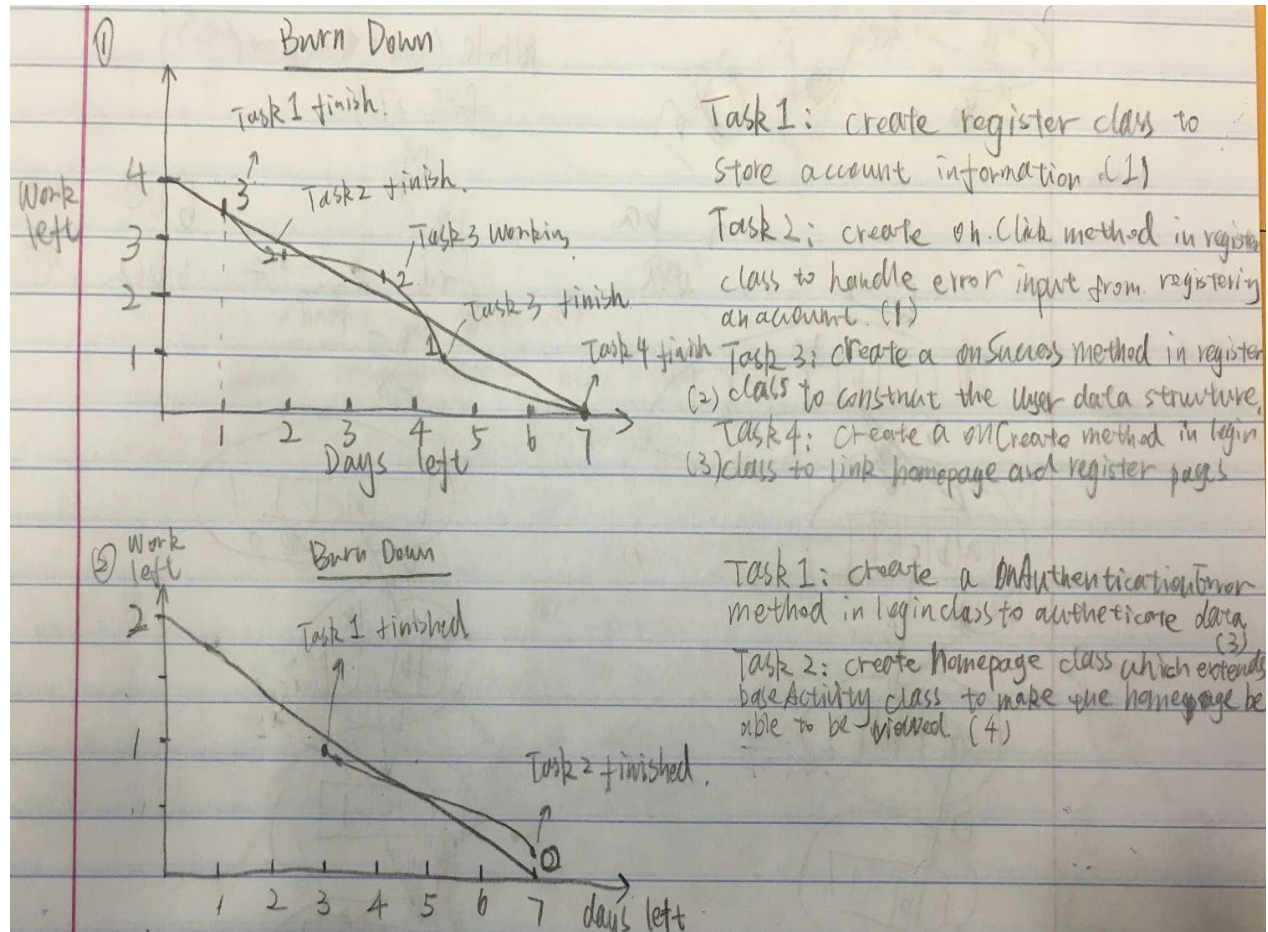 ① Burn Down
Task 1 finish.
Task 2 finish.
Task 3 working
Task 3 finish.
Task 4 finish
Work
left
4
3
2
1
3
2
2
1
1 2 3 4 5 6 7
Days left
Task 1: create register class to
store account information (1)
Task 2: create on.Click method in register
class to handle error input from registering
an account. (1)
Task 3: create a onSuccess method in register
(2) class to construct the user data structure.
Task 4: create a onCreate method in login
(3) class to link homepage and register pages
② Work
left
Burn Down
2
1
Task 1 finished
Task 2 finished.
0
1 2 3 4 5 6 7 days left
Task 1: create a onAuthenticationError
method in login class to autheticate data
(3)
Task 2: create homepage class which extends
baseActivity class to make the homepage be
able to be viewed. (4)